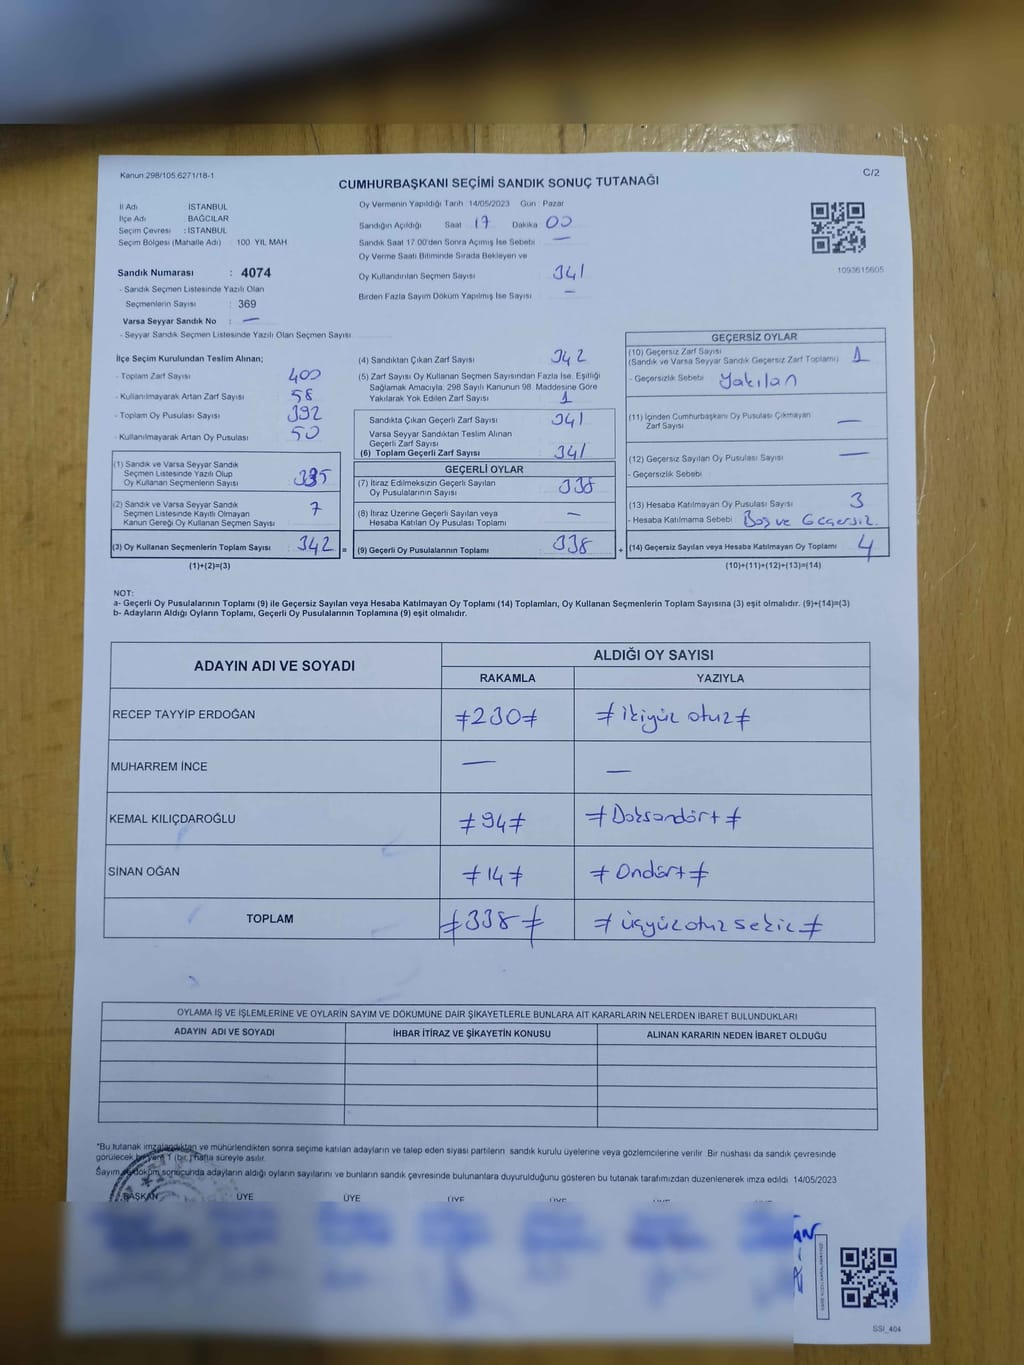 Kanun 298/105,6271/18-1
C/2
CUMHURBAŞKANI SEÇİMİ SANDIK SONUÇ TUTANAĞI
İl Adı : İSTANBUL
İlçe Adı : BAĞCILAR
Seçim Çevresi : İSTANBUL
Seçim Bölgesi (Mahalle Adı) : 100. YIL MAH
Sandık Numarası : 4074
- Sandık Seçmen Listesinde Yazılı Olan
Seçmenlerin Sayısı : 369
Varsa Seyyar Sandık No : —
- Seyyar Sandık Seçmen Listesinde Yazılı Olan Seçmen Sayısı
Oy Vermenin Yapıldığı Tarih 14/05/2023 Gün : Pazar
Sandığın Açıldığı Saat 17 Dakika 00
Sandık Saat 17.00'den Sonra Açımış İse Sebebi —
Oy Verme Saati Bitiminde Sırada Bekleyen ve
Oy Kullandırılan Seçmen Sayısı 341
Birden Fazla Sayım Döküm Yapılmış İse Sayısı —
1093615605
İlçe Seçim Kurulundan Teslim Alınan;
- Toplam Zarf Sayısı 400
- Kullanılmayarak Artan Zarf Sayısı 58
- Toplam Oy Pusulası Sayısı 392
- Kullanılmayarak Artan Oy Pusulası 50
(1) Sandık ve Varsa Seyyar Sandık
Seçmen Listesinde Yazılı Olup
Oy Kullanan Seçmenlerin Sayısı 335
(2) Sandık ve Varsa Seyyar Sandık
Seçmen Listesinde Kayıtlı Olmayan
Kanun Gereği Oy Kullanan Seçmen Sayısı 7
(3) Oy Kullanan Seçmenlerin Toplam Sayısı : 342 =
(1)+(2)=(3)
(4) Sandıktan Çıkan Zarf Sayısı 342
(5) Zarf Sayısı Oy Kullanan Seçmen Sayısından Fazla İse, Eşitliği
Sağlamak Amacıyla, 298 Sayılı Kanunun 98. Maddesine Göre
Yakılarak Yok Edilen Zarf Sayısı 1
Sandıkta Çıkan Geçerli Zarf Sayısı 341
Varsa Seyyar Sandıktan Teslim Alınan
Geçerli Zarf Sayısı
(6) Toplam Geçerli Zarf Sayısı 341
GEÇERLİ OYLAR
(7) İtiraz Edilmeksizin Geçerli Sayılan
Oy Pusulalarının Sayısı 338
(8) İtiraz Üzerine Geçerli Sayılan veya
Hesaba Katılan Oy Pusulası Toplamı —
(9) Geçerli Oy Pusulalarının Toplamı 338 +
GEÇERSİZ OYLAR
(10) Geçersiz Zarf Sayısı
(Sandık ve Varsa Seyyar Sandık Geçersiz Zarf Toplamı) 1
- Geçersizlik Sebebi Yakılan
(11) İçinden Cumhurbaşkanı Oy Pusulası Çıkmayan
Zarf Sayısı —
(12) Geçersiz Sayılan Oy Pusulası Sayısı —
- Geçersizlik Sebebi
(13) Hesaba Katılmayan Oy Pusulası Sayısı 3
- Hesaba Katılmama Sebebi Boş ve Geçersiz.
(14) Geçersiz Sayılan veya Hesaba Katılmayan Oy Toplamı 4
(10)+(11)+(12)+(13)=(14)
NOT:
a- Geçerli Oy Pusulalarının Toplamı (9) ile Geçersiz Sayılan veya Hesaba Katılmayan Oy Toplamı (14) Toplamları, Oy Kullanan Seçmenlerin Toplam Sayısına (3) eşit olmalıdır. (9)+(14)=(3)
b- Adayların Aldığı Oyların Toplamı, Geçerli Oy Pusulalarının Toplamına (9) eşit olmalıdır.
ADAYIN ADI VE SOYADI ALDIĞI OY SAYISI
RAKAMLA YAZIYLA
RECEP TAYYİP ERDOĞAN ≠230≠ ≠ ikiyüz otuz ≠
MUHARREM İNCE — —
KEMAL KILIÇDAROĞLU ≠94≠ ≠ Doksandört ≠
SİNAN OĞAN ≠14≠ ≠ Ondört ≠
TOPLAM ≠338≠ ≠ üçyüzotuz sekiz ≠
OYLAMA İŞ VE İŞLEMLERİNE VE OYLARIN SAYIM VE DÖKÜMÜNE DAİR ŞİKAYETLERLE BUNLARA AİT KARARLARIN NELERDEN İBARET BULUNDUKLARI
ADAYIN ADI VE SOYADI İHBAR İTİRAZ VE ŞİKAYETİN KONUSU ALINAN KARARIN NEDEN İBARET OLDUĞU
*Bu tutanak imzalandıktan ve mühürlendikten sonra seçime katılan adayların ve talep eden siyasi partilerin sandık kurulu üyelerine veya gözlemcilerine verilir. Bir nüshası da sandık çevresinde
görülecek bir yere 1 (bir ) hafta süreyle asılır.
Sayım ve döküm sonucunda adayların aldığı oyların sayılarını ve bunların sandık çevresinde bulunanlara duyurulduğunu gösteren bu tutanak tarafımızdan düzenlenerek imza edildi. 14/05/2023
BAŞKAN ÜYE ÜYE ÜYE
SSI_404